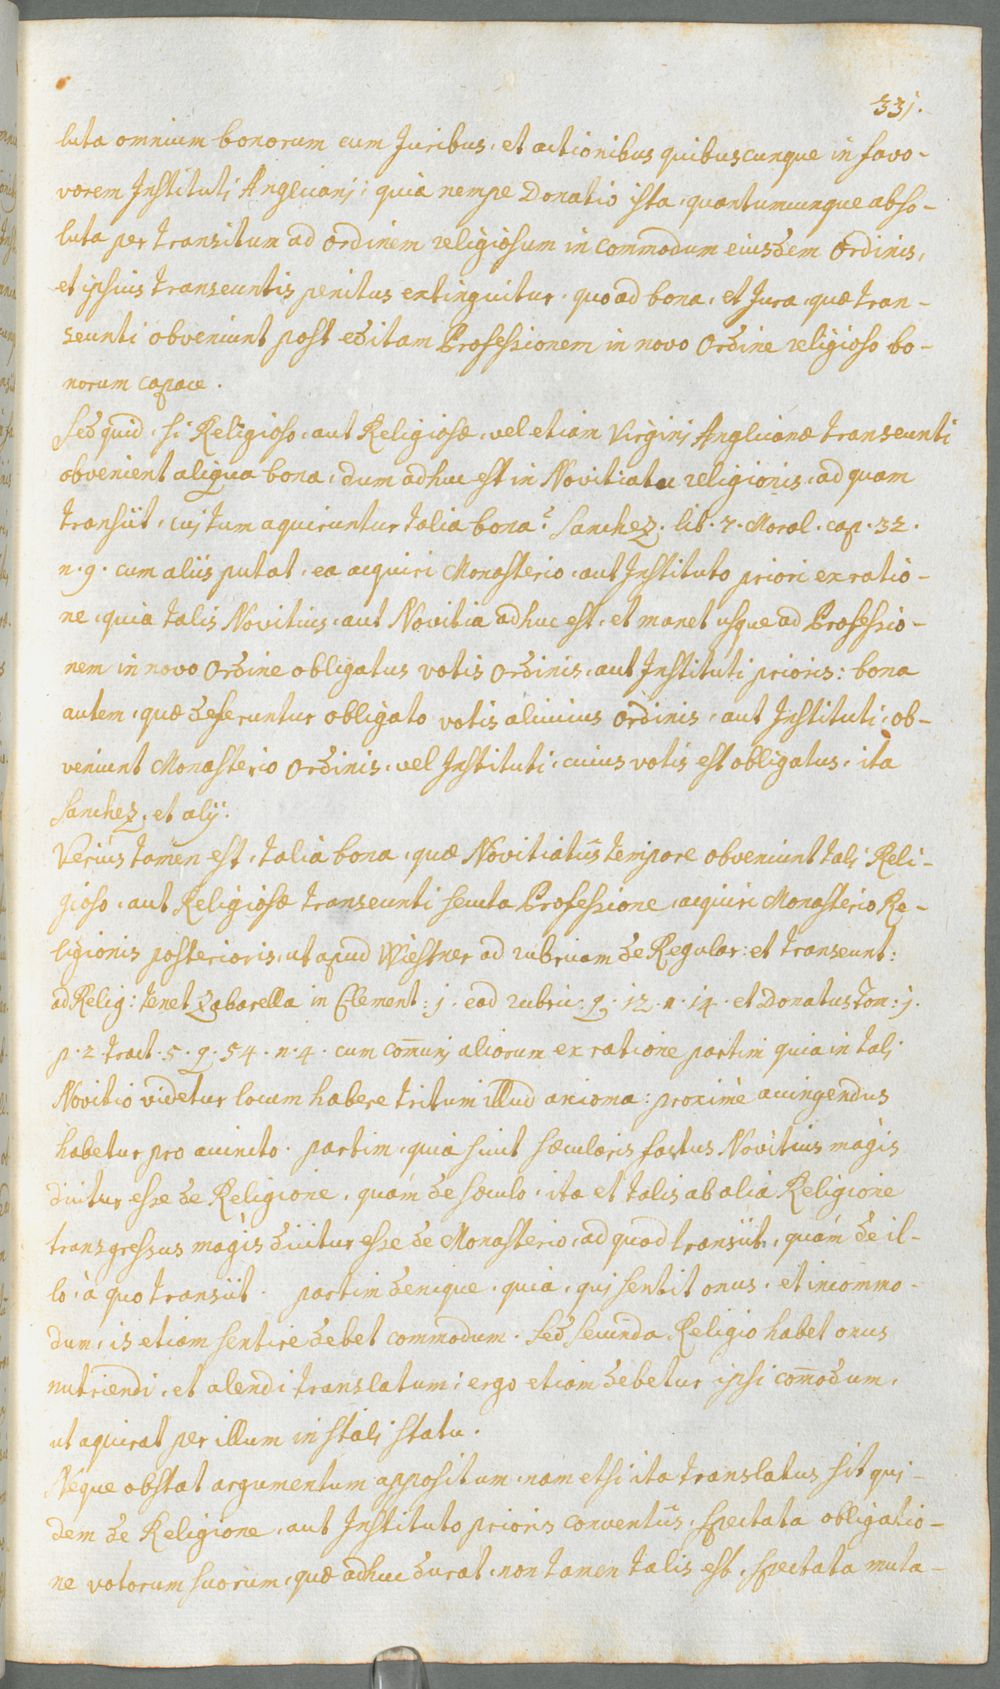 331.
luta omnium bonorum cum Juribus, et actionibus quibuscunque in favo-
vorem Instituti Anglicani; quia nempe Donatio ista, quantumcunque abso-
luta per transitum ad ordinem religiosum in commodum eiusdem Ordinis,
et ipsius transeuntis penitus extinguitur, quoad bona, et Jura, quæ tran-
seunti obveniunt post editam Professionem in novo Ordine religioso bo-
norum capace.
Sed quid, si Religioso, aut Religiosæ, vel etiam Virgini Anglicanæ transeunti
obvenient aliqua bona, dum adhuc est in Novitiatu religionis, ad quam
transiit, cuj tum aquiruntur talia bona? Sanchez. lib. 7. Moral. cap. 32.
n. 9. cum aliis putat, ea acquiri Monasterio, aut Instituto priori ex ratio-
ne, quia talis Novitius, aut Novitia adhuc est, et manet usque ad Professio-
nem in novo Ordine obligatus votis Ordinis, aut Instituti prioris: bona
autem, quæ deferuntur obligato votis alicuius Ordinis, aut Instituti, ob-
veniunt Monasterio Ordinis, vel Instituti, cuius votis est obligatus, ita
Sanchez, et alÿ.
Verius tamen est, talia bona, quæ Novitiatûs tempore obveniunt tali Reli-
gioso, aut Religiosæ transeunti secuta Professione, acquiri Monasterio Re-
ligionis posterioris, ut apud Wiestner ad rubricam de Regular: et transeunt:
ad Relig: tenet Zabarella in Clement: j. ead rubric. q. 12. n. 14. et Donatus Tom: j.
p. 2. tract. 5. q. 54. n. 4. cum com̄uni aliorum ex ratione partim quia in tali
Novitio videtur locum habere tritum illud axioma: proximè accingendus
habetur pro accincto. partim, quia sicut sæcularis factus Novitius magis
dicitur esse de Religione, quám de sæculo, ita et talis ab aliá Religione
transgressus magis dicitur esse de Monasterio, ad quod transiit, quám de il-
lo, à quo transiit. partim denique, quia, qui sentit onus, et incommo-
dum, is etiam sentire debet commodum. Sed secunda Religio habet onus
nutriendi, et alendi translatum; ergo etiam debetur ipsi com̄odum,
ut aquirat per illum in stali statu.
Neque obstat argumentum appositum, nam etsi ita translatus sit qui-
dem de Religione, aut Instituto prioris conventûs, spectata obligatio-
ne votorum suorum, quæ adhuc durat, non tamen talis est, spectata muta-